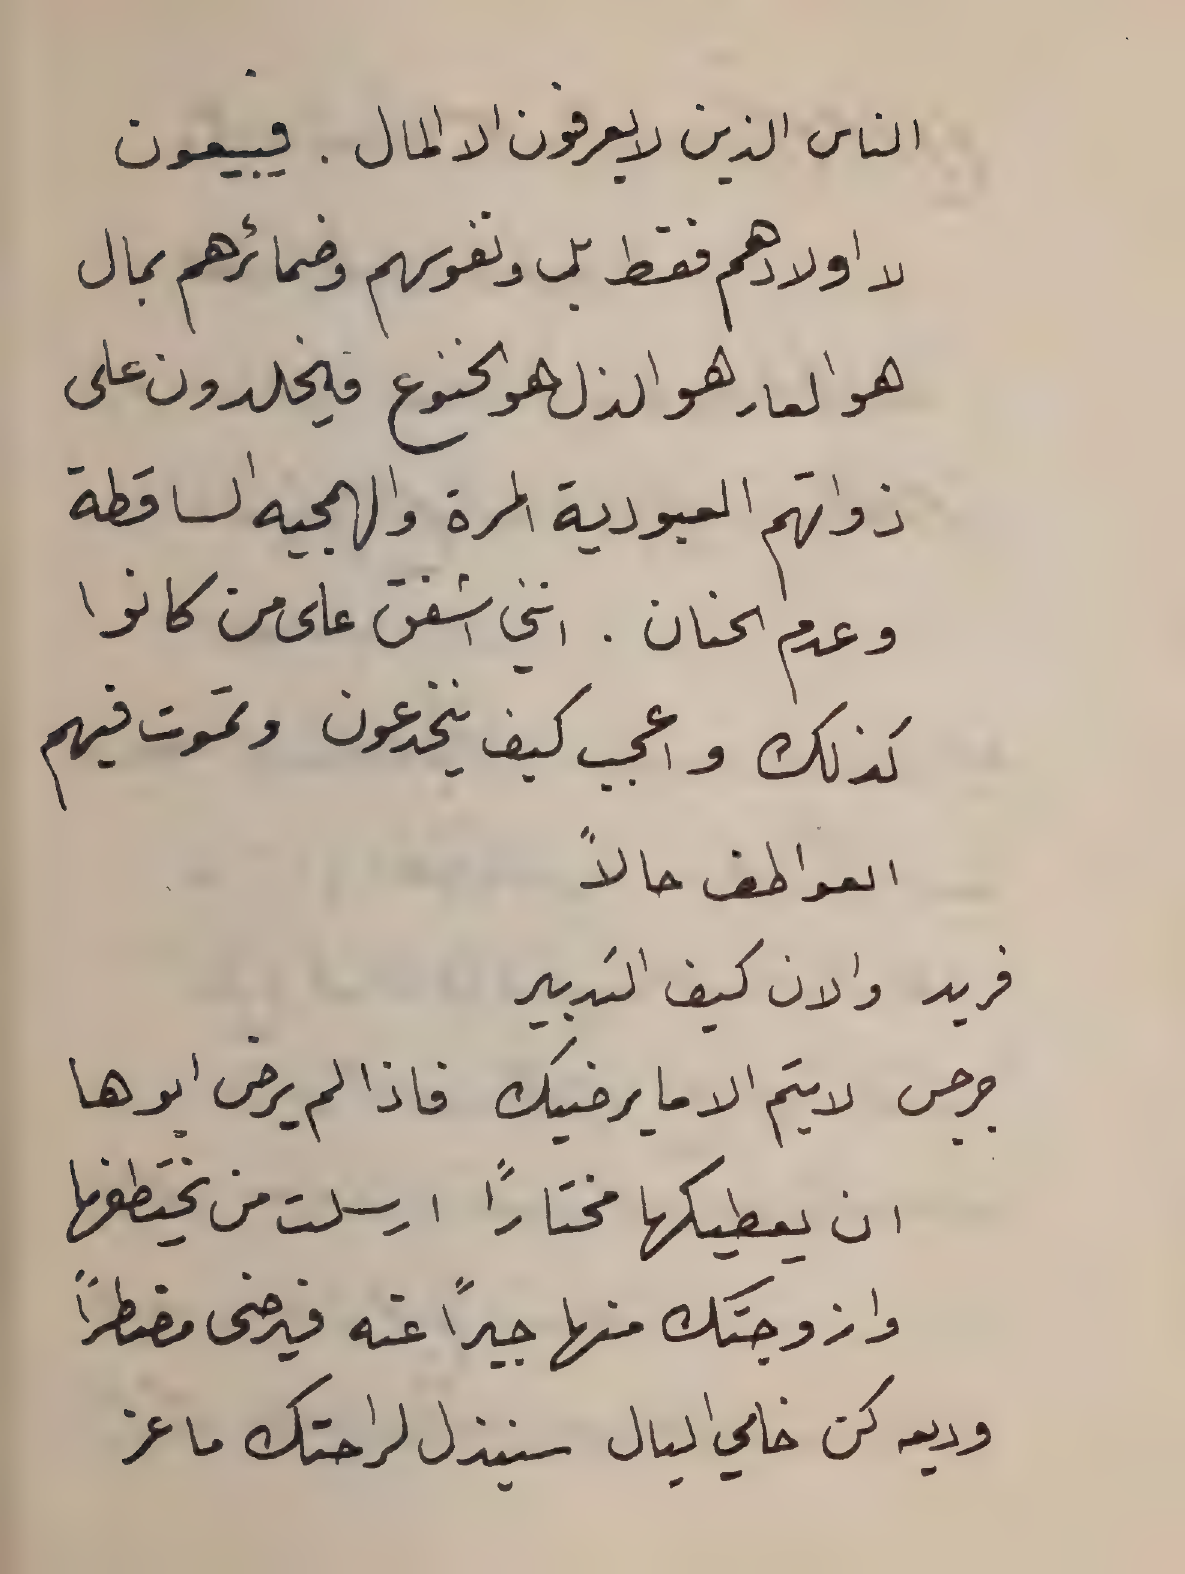 الناس الذين لا يعرفون الا المال . فيبيعون
لا اولادهم فقط بل ونفوسهم وضمائرهم بمال
هو العار هو الذل هو الخنوع فيخلدون على
ذواتهم العبودية المرة والهمجيه الساقطة
وعدم الحنان . انني اشفق على من كانوا
كذلك واعجب كيف ينخدعون وتموت فيهم
العواطف حالاً
فريد والان كيف التدبير
جرجس لا يتم الا ما يرضيك فاذا لم يرض ابوها
ان يعطيكها مختارًا ارسلت من يختطفها
وازوجتك منها جبرًا عنه فيرضى مضطرًا
وديعه كن خالي البال سنبذل لراحتك ما عز